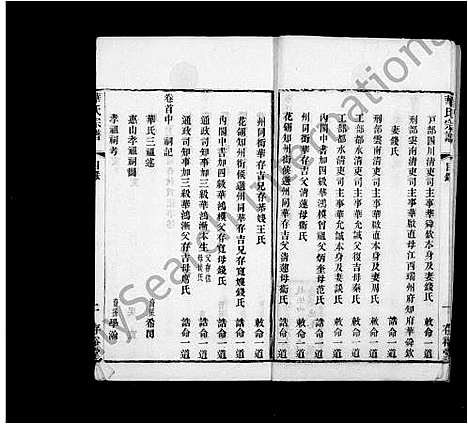 華氏宗譜
目錄
戶部四川清吏司主事華舜欽本身及妻錢氏 敕命一道
刑部雲南清吏司主事華啟直母江西瑞州府知府華舜欽
妻錢氏 誥命一道
刑部雲南清吏司主事華啟直本身及妻周氏 敕命一道
工部都水清吏司主事華允誠父復吉母秦氏 敕命一道
工部都水清吏司主事華允誠本身及妻談氏 敕命一道
內閣中書加四級華鴻模曾祖父炳奎母范氏 誥命一道
花翎知州銜候選州同華存吉父清蓮母衛氏 誥命一道
州同銜華存吉父清蓮母衛氏 敕命一道
州同銜華存吉兄存棻嫂王氏 敕命一道
花翎知州銜候選州同華存吉兄存寬嫂錢氏 誥命一道
內閣中書加四級華鴻模父存寬母錢氏 誥命一道
通政司知事加三級華鴻漸本生父存恭母侯氏 誥命一道
通政司知事加三級華鴻漸父存吉母席氏 誥命一道
卷首中 祠記
華氏三祖述 希閎
惠山孝祖祠圖
孝祖祠考 學瀚
華氏宗譜
目錄